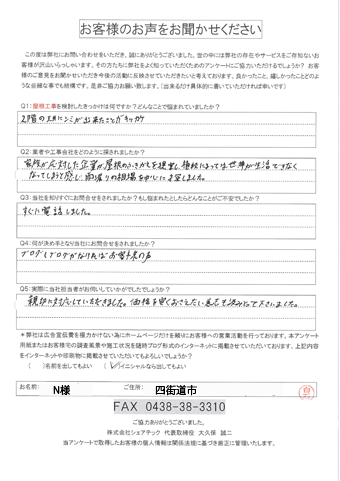 お客様のお声をお聞かせください
この度は弊社にお問い合わせをいただき、誠にありがとうございました。世の中には弊社の存在やサービスをご存知ないお
客様が沢山いらっしゃいます。その方たちに弊社をよく知っていただくためのアンケートにご協力いただけるでしょうか？ お客
様のご意見をお聞かせいただき今後の活動に反映させていただきたいと考えております。良かったこと、嬉しかったことどのよ
うな些細な事でも結構です。是非ご協力お願い致します。(出来るだけ具体的に書いていただければ幸いです)
Q1: 屋根工事を検討したきっかけは何ですか？どんなことで悩まれていましたか？
2階の天井にシミが出来たことがキッカケ
Q2: 業者や工事会社をどのように探されましたか？
なってしまうと感じ 雨漏りの
Q3: 当社を知りすぐにお問合せをされましたか？もし悩まれたとしたらどんなことがご不安でしたか？
すぐに電話しました。
Q4: 何が決め手となり当社にお問合せをされましたか？
ブログ
お客様の声
Q5: 実際に当社担当者がお伺いしていかがでしたでしょうか？
親切に対応していただきました。価格を安くおさえたい
＊弊社は広告宣伝費を極力かけない為にホームページだけを頼りにお客様への営業活動を行っております。本アンケート
用紙またはお客様宅の調査風景や施工状況を随時ブログ形式のインターネットに掲載させていただいております。上記内容
をインターネットや印刷物に掲載させていただいてもよろしいでしょうか？
( )名前を出してもよい (✓)イニシャルなら出してもよい
お名前: N様 ご住所: 四街道市
FAX 0438-38-3310
ご協力ありがとうございました。
株式会社シェアテック 代表取締役 大久保 誠二
当アンケートで取得したお客様の個人情報は関係法規に基づき厳正に管理いたします。